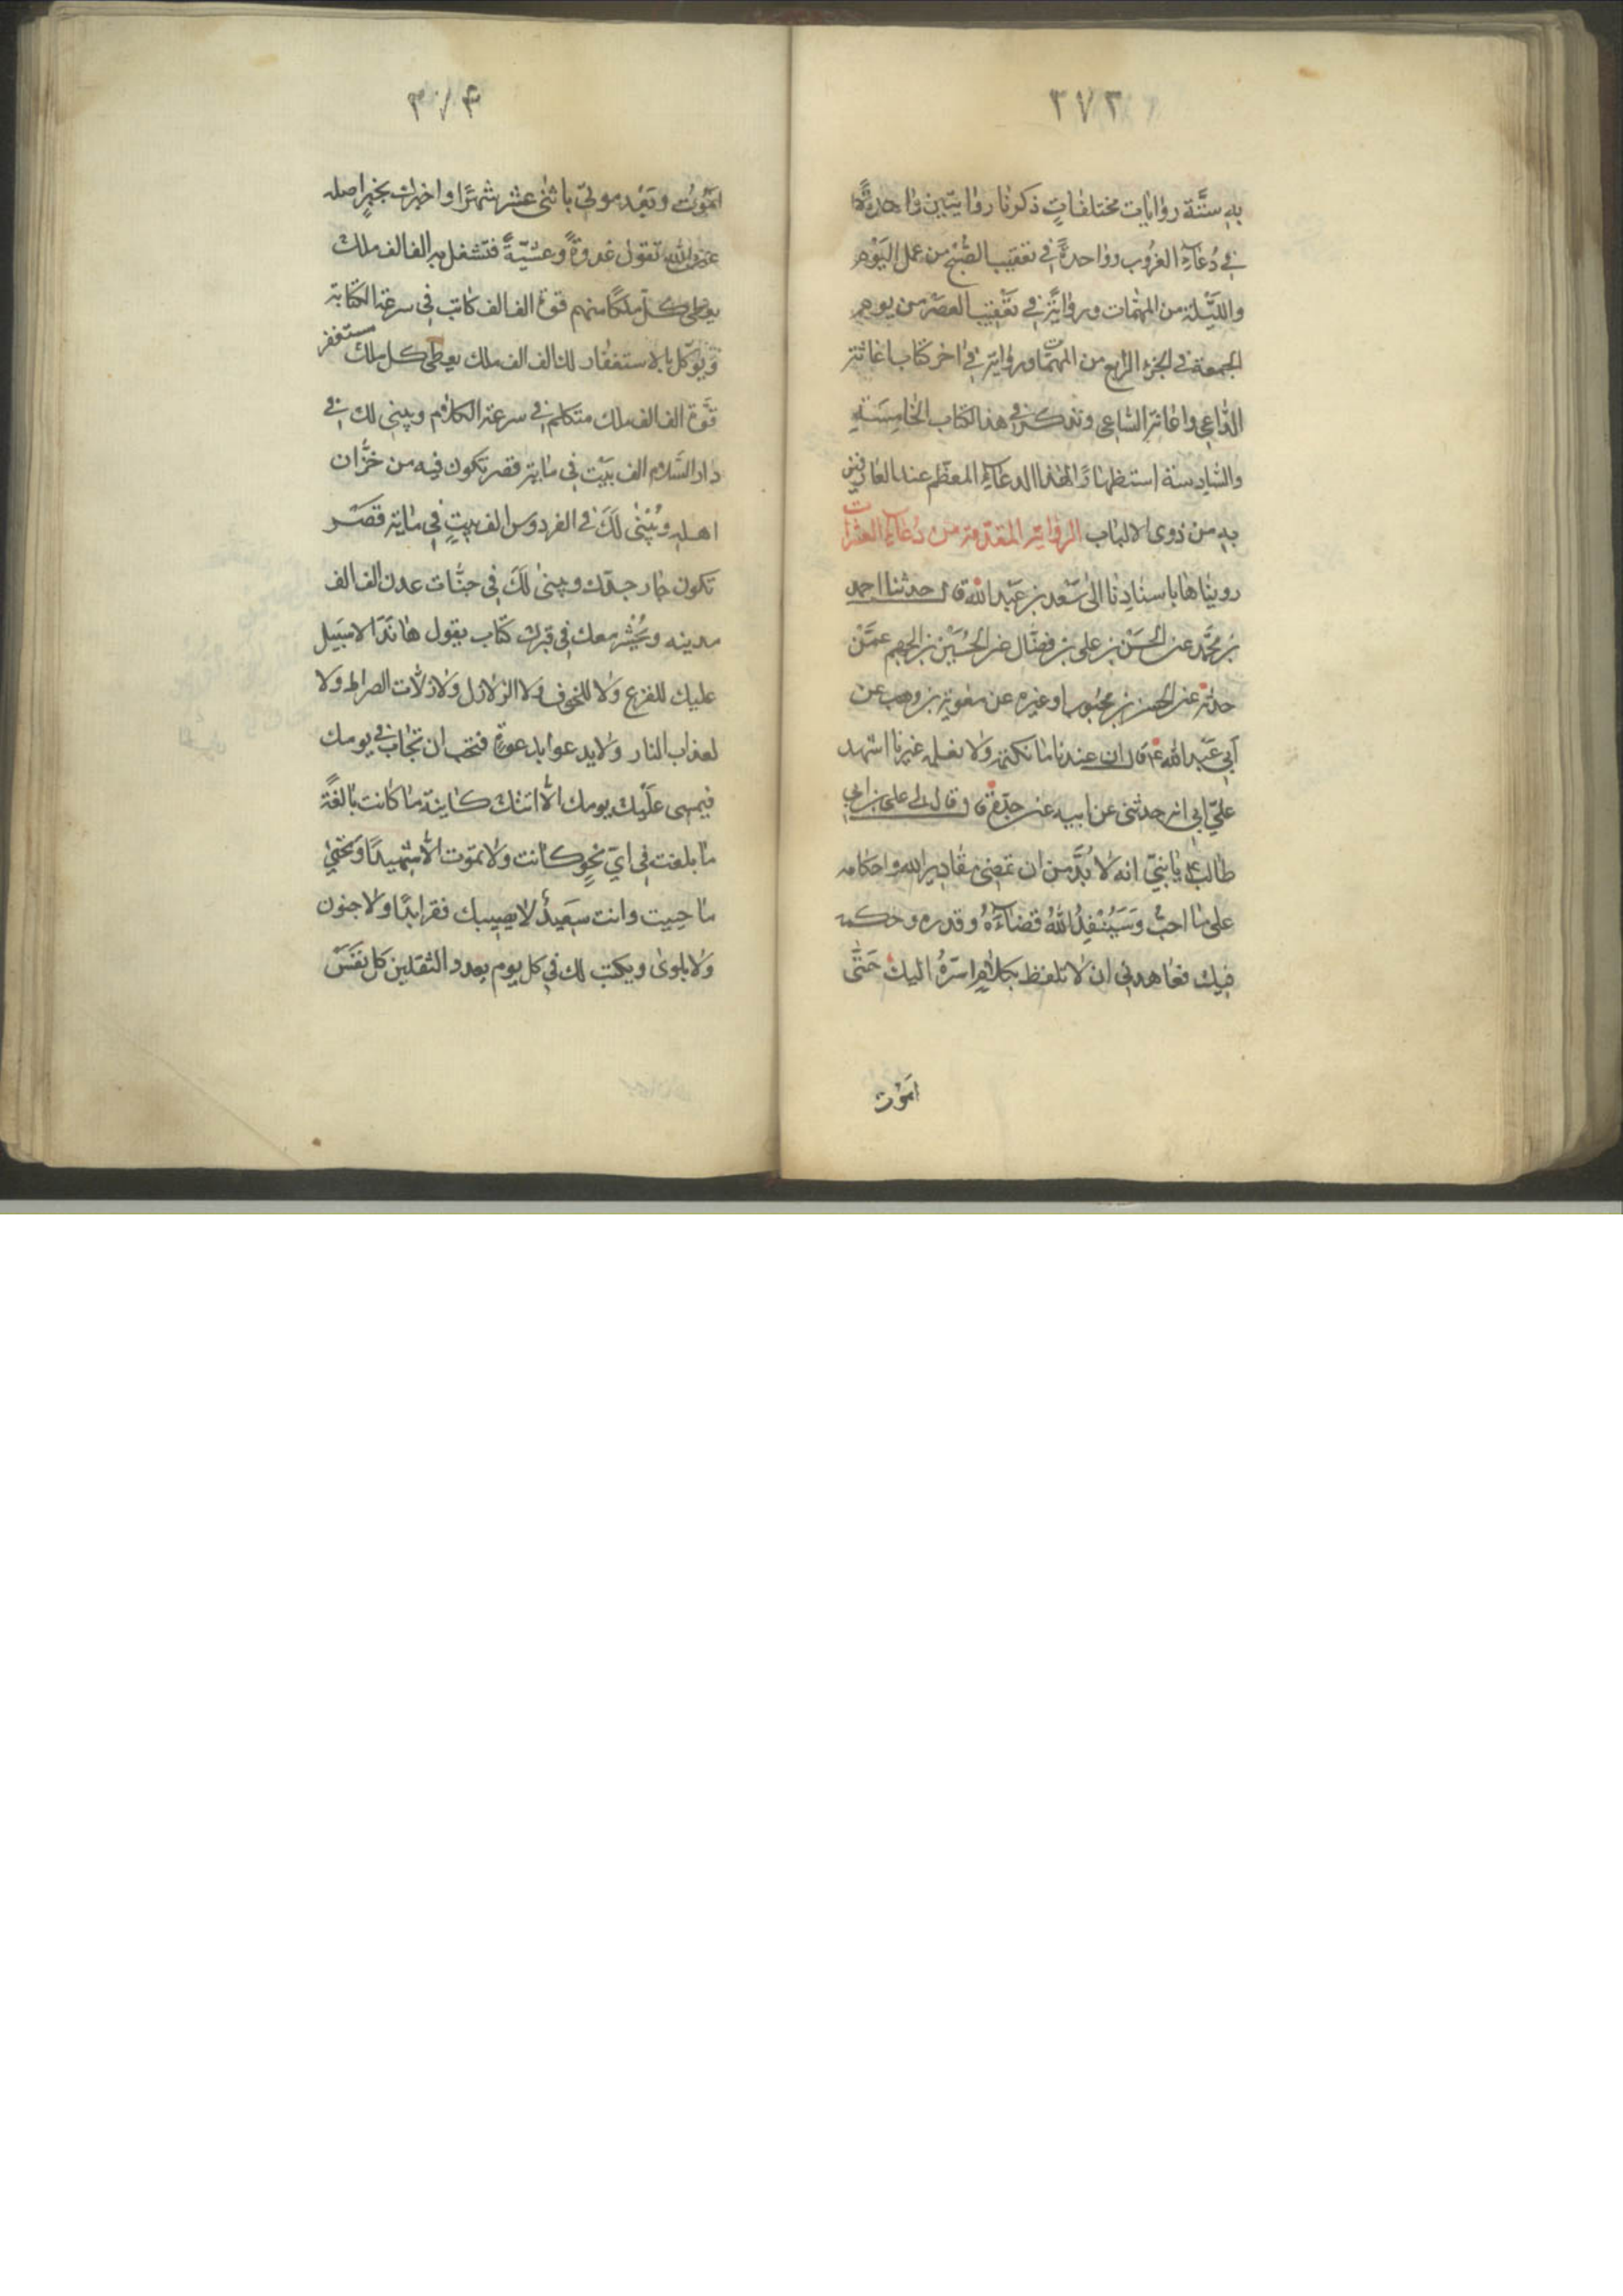 ٣٧٢
به ستّة روايات مختلفاتٍ ذكرنا روايتين واحدةً
في دُعاءِ الغروب وواحدةً في تعقيب الصُّبح من عمل اليَوْم
واللّيلة من المهمّات ورواية في تعقيب العصر من يوم
الجمعة في الجزء الرابع من المهمّات ورواية في اخر كتاب اغاثة
الدّاعي واعانة السّاعي ونذكر في هذا الكتاب الخامِسَة
والسّادسة استظهارًا لهذا الدعاء المعظّم عند العارفين
به من ذوى الالباب الرواية المقدّمة من دُعاءِ العشرات
رويناها باسنادِنا الى سَعْد بن عَبْد الله قال حدثنا احمد
بن محمّد عن الحسَن بن على بن فضّال عن الحُسَيْن بن الجهم عمّن
حدثه عن الحسن بن محبوب او غيره عن معوية بن وهب عن
أبي عَبْد الله ع قال ان عندنا ما نكتمه ولا نعلمه غيرنا اشهد
عليّ ابي انه حدثنى عن ابيه عن جدّه قال قال لي علي بن ابي
طالب ع يا بنيّ انه لا بُدَّ من ان تمضى مقادير الله واحكامه
على ما احبّ وَسَيُنْفِذُ اللهُ قضاءَهُ وقدره وحكمه
فيك فعاهدنى ان لا تلفظ بكلامٍ اسرّهُ اليك حَتّى
اموت
اموت وبَعْد موتي باثنى عشر شهرًا واخبرك بخبرٍ اصله
عن الله تقول غدوةً وعشيّةً فتشغل به الف الف ملك
يعطى كلّ ملكًا منهم قوة الف الف كاتب في سرعة الكتابة
ويوكّل بالاستغفار لك الف الف ملك يعطى كل ملك مستغفر
قوّة الف الف ملك متكلم في سرعة الكلام ويبنى لك في
دار السّلام الف بيْت في ماية قصر تكون فيه من جيران
اهله ويُبْنى لَكَ في الفردوس الف بيتٍ في ماية قصر
تكون جار جدّك ويبنى لَكَ في جنّات عدن الف الف
مدينه ويُحشر معك في قبرك كتاب يقول هانذا لا سَبيل
عليك للفزع ولا للخوف ولا الزلازل ولا زلّات الصراط ولا
لعذاب النار ولا يدعوا بدعوةٍ فتحب ان تجاب في يومك
فيمسى علَيْك يومك الّا اتتك كاينة ما كانت بالغةً
ما بلغت في ايّ نحوٍ كانت ولا تموت الّا شهيدًا وتحيى
ما حييت وانت سَعيدٌ لا يصيبك فقر ابدًا ولا جنون
ولا بلوى ويكتب لك في كل يوم بعدد الثقلين كل نفَسَ